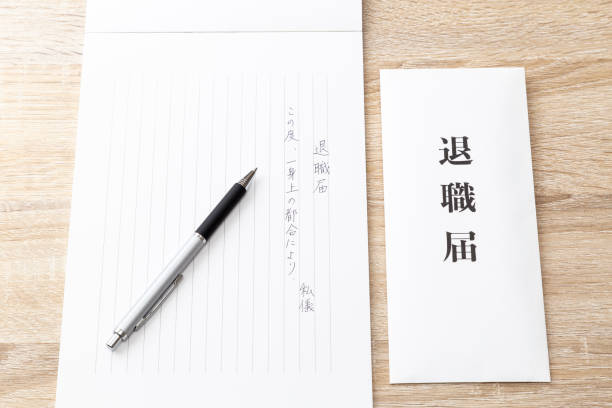 退職届
私儀
この度、一身上の都合により、
退職届